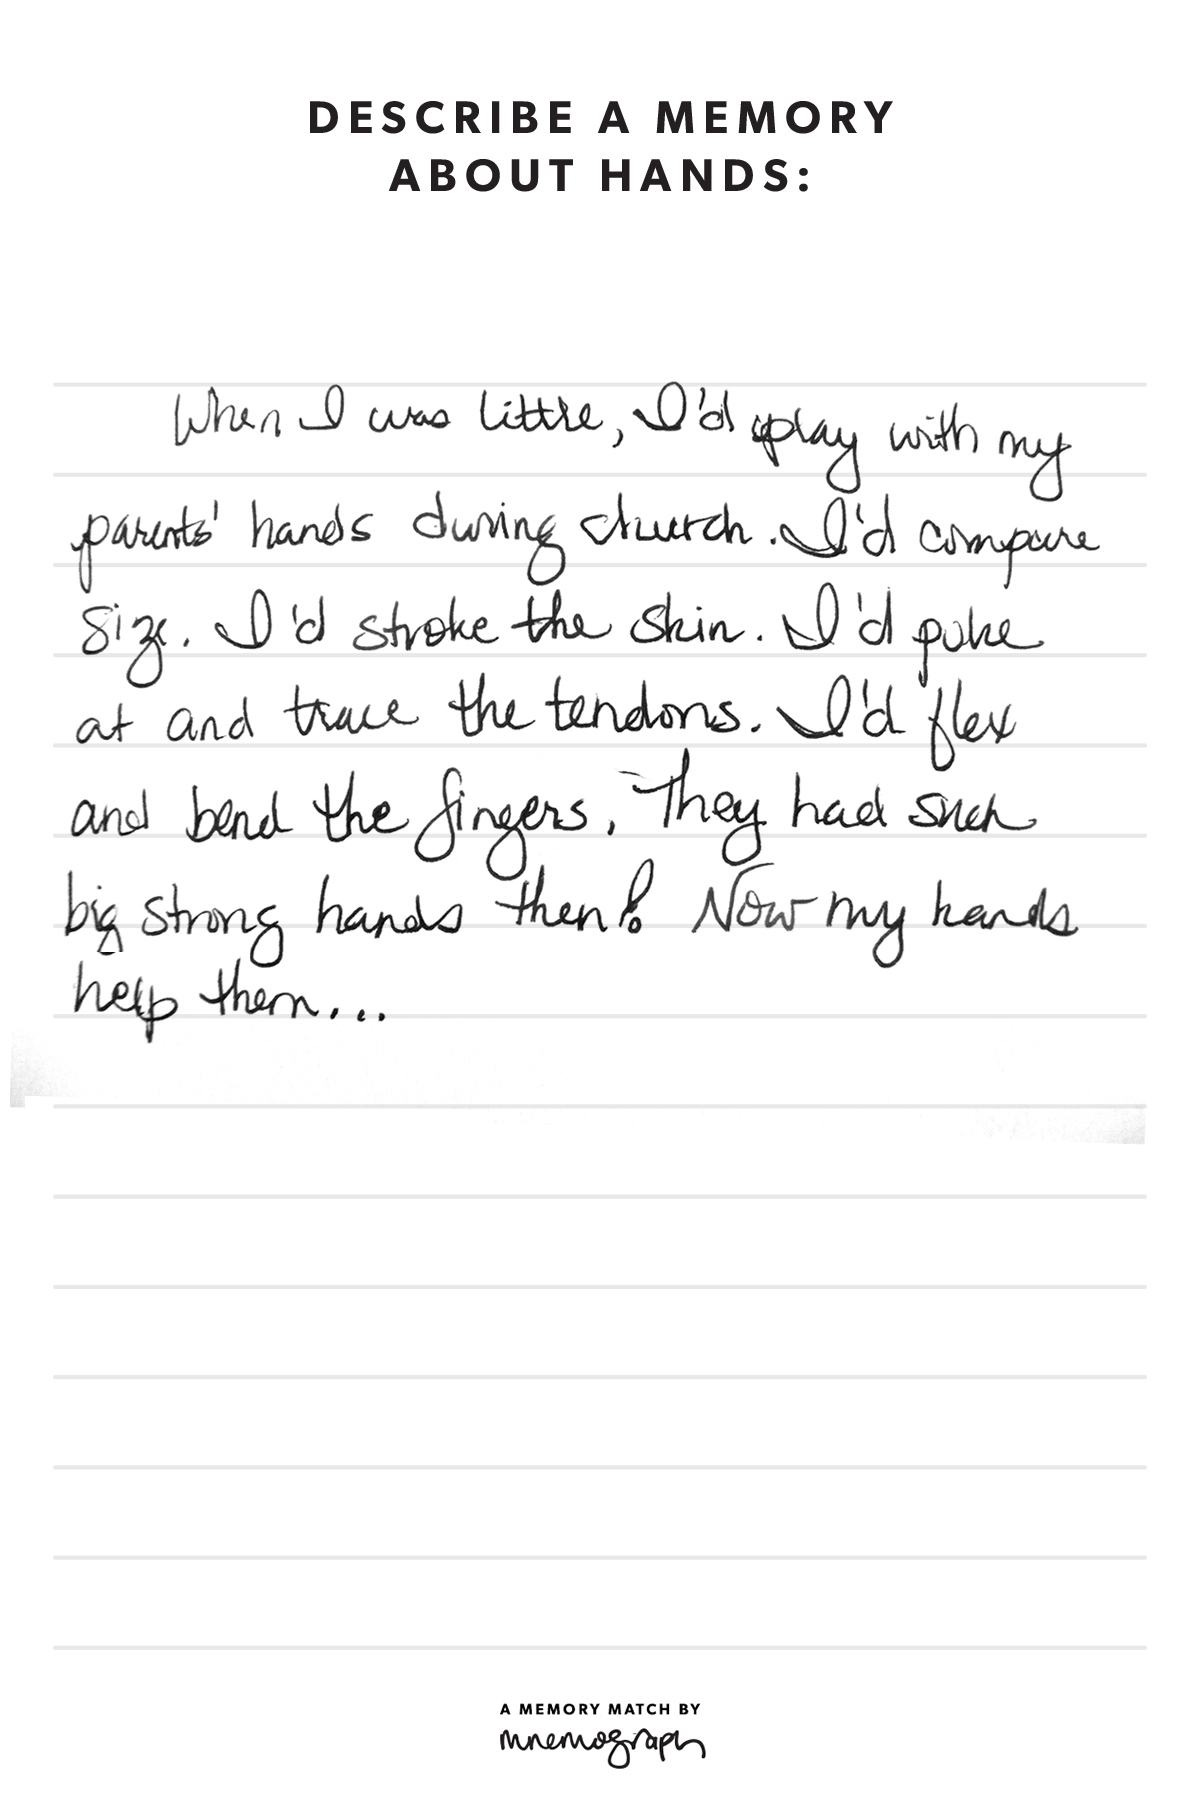 DESCRIBE A MEMORY
ABOUT HANDS:
When I was little, I'd play with my
parents' hands during church. I'd compare
size. I'd stroke the skin. I'd poke
at and trace the tendons. I'd flex
and bend the fingers. They had such
big strong hands then! Now my hands
help them...
A MEMORY MATCH BY
mnemograph